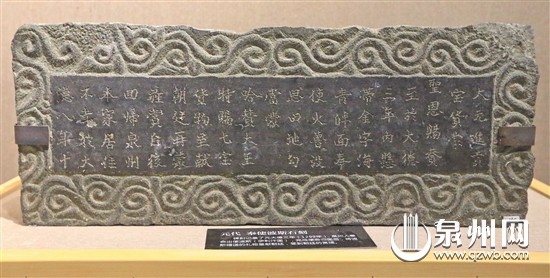 大元進貢
寶貨蒙
聖恩賜賚
至於大德
三年內懸
帶金字海
青牌面奉
使火魯沒
思田地勾
當蒙
哈贊大王
特賜七寶
貨物呈獻
朝廷再蒙
旌賞自後
回歸泉州
本家居住
不幸於大
德八年十
元代 奉使波斯石刻
泉州网
www.qzwb.com